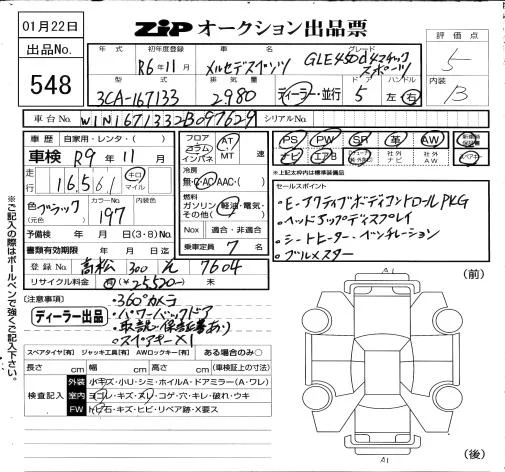 01月22日
ZIP オークション出品票
出品No.
548
評価点
5
内装
B
年式 初年度登録 車名 グレード
R6年11月 メルセデスベンツ GLE450d4マチック
スポーツ
型式 排気量 ドア ハンドル
3CA-167133 2980 ディーラー・並行 5 左・右
車台No. W1N1671332B097629 シリアルNo.
車歴 自家用・レンタ・( )
車検 R9年11月
走行 16,561 キロ マイル
色 ブラック (元色) カラーNo. 197
予備検 年 月 日 (3・8) No.
書類有効期限 年 月 日迄
登録No. 高松 300 7604
リサイクル料金 有(¥25,520-) 未
フロア コラム インパネ AT MT 速
冷房 無・C・AC・AAC・( )
燃料 ガソリン・軽油・電気・その他( )
Nox 適合・非適合
乗車定員 7 名
PS PW SR 革 AW
ナビ エアB 社外ナビ 社外AW
*上記太枠内は標準装備品
セールスポイント
・E-アクティブボディコントロールPKG
・ヘッドアップディスプレイ
・シートヒーター・ベンチレーション
・ブルメスター
(注意事項)
ディーラー出品
・360°カメラ
・パワーバックドア
・取説・保証書あり
・スペアキー×1
スペアタイヤ(有) ジャッキ工具(有) AWロックキー(有) ある場合のみ○
長さ cm 幅 cm 高さ cm (車検証上の寸法)
検査記入
外装 小キズ・小U・シミ・ホイルA・ドアミラー(A・ワレ)
室内 ヨゴレ・キズ・スレ・コゲ・穴・キレ・破れ・ウキ
FW トビ石・キズ・ヒビ・リペア跡・X要ス
※ご記入の際はボールペンで強くご記入下さい。
A1
(前)
A1
(後)